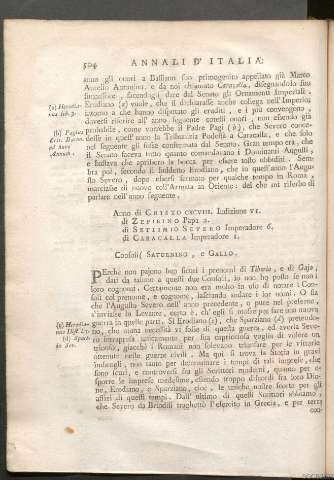 504 ANNALI D' ITALIA.
anno gli onori a Bassiano suo primogenito appellato già Marco
Aurelio Antonino, e da noi chiamato Caracalla, disegnandolo suo
successore, facendogli dare dal Senato gli Ornamenti Imperiali.
(a) Herodia-
nus lib. 3.
Erodiano (a) vuole, che il dichiarasse anche collega nell'Imperio;
intorno a che hanno disputato gli eruditi, e i più convengono,
doversi riferire all' anno seguente cotesti onori, non essendo già
(b) Pagius
Crit. Baron.
ad hunc
Annum.
probabile, come vorrebbe il Padre Pagi (b), che Severo conce-
desse in quest' anno la Tribunizia Podestà a Caracalla, e che solo
nel seguente gli fosse confermata dal Senato. Gran tempo era, che
il Senato faceva tutto quanto comandavano i Dominanti Augusti,
e bastava che aprissero la bocca per essere tosto ubbiditi. Sem-
bra poi, secondo il suddetto Erodiano, che in quest'anno l'Augu-
sto Severo, dopo essersi fermato per qualche tempo in Roma,
marciasse di nuovo coll'Armata in Oriente: del che mi riserbo di
parlare nell'anno seguente.
Anno di CRISTO CXCVIII. Indizione VI.
di ZEFIRINO Papa 2.
di SETTIMIO SEVERO Imperadore 6.
di CARACALLA Imperadore 1.
Consoli SATURNINO, e GALLO.
PErchè non pajono ben sicuri i prenomi di Tiberio, e di Gajo,
dati da taluno a questi due Consoli, io non ho posto se non i
loro cognomi. Certamente non era molto in uso di notare i Con-
soli col prenome, e cognome, lasciando andare i lor nomi. O sia
che l'Augusto Severo nell' anno precedente, o pure nel presente,
s'inviasse in Levante, certo è, ch'egli si mosse per fare una nuova
(c) Herodian.
Hist. l. 3.
(d) Sparti.
in Sev.
guerra in quelle parti. Sì Erodiano (c), che Sparziano (d) pretendo-
no, che niuna necessità vi fosse di questa guerra, ed averla Seve-
ro intrapresa unicamente per sua capricciosa voglia di vedere un
trionfo, giacchè i Romani non solevano trionfare per le vittorie
ottenute nelle guerre civili. Ma qui si trova la Storia in gravi
imbrogli, non tanto per determinare i tempi di tali imprese, che
sono scuri, e controversi fra gli Scrittori moderni, quanto per e-
sporre le imprese medesime, essendo troppo discordi fra loro Dio-
ne, Erodiano, e Sparziano, cioè, le uniche nostre scorte per gli
affari di questi tempi. Dall' ultimo di questi Scrittori abbiamo,
che Severo da Brindisi traghettò l'esercito in Grecia, e per terra
con-